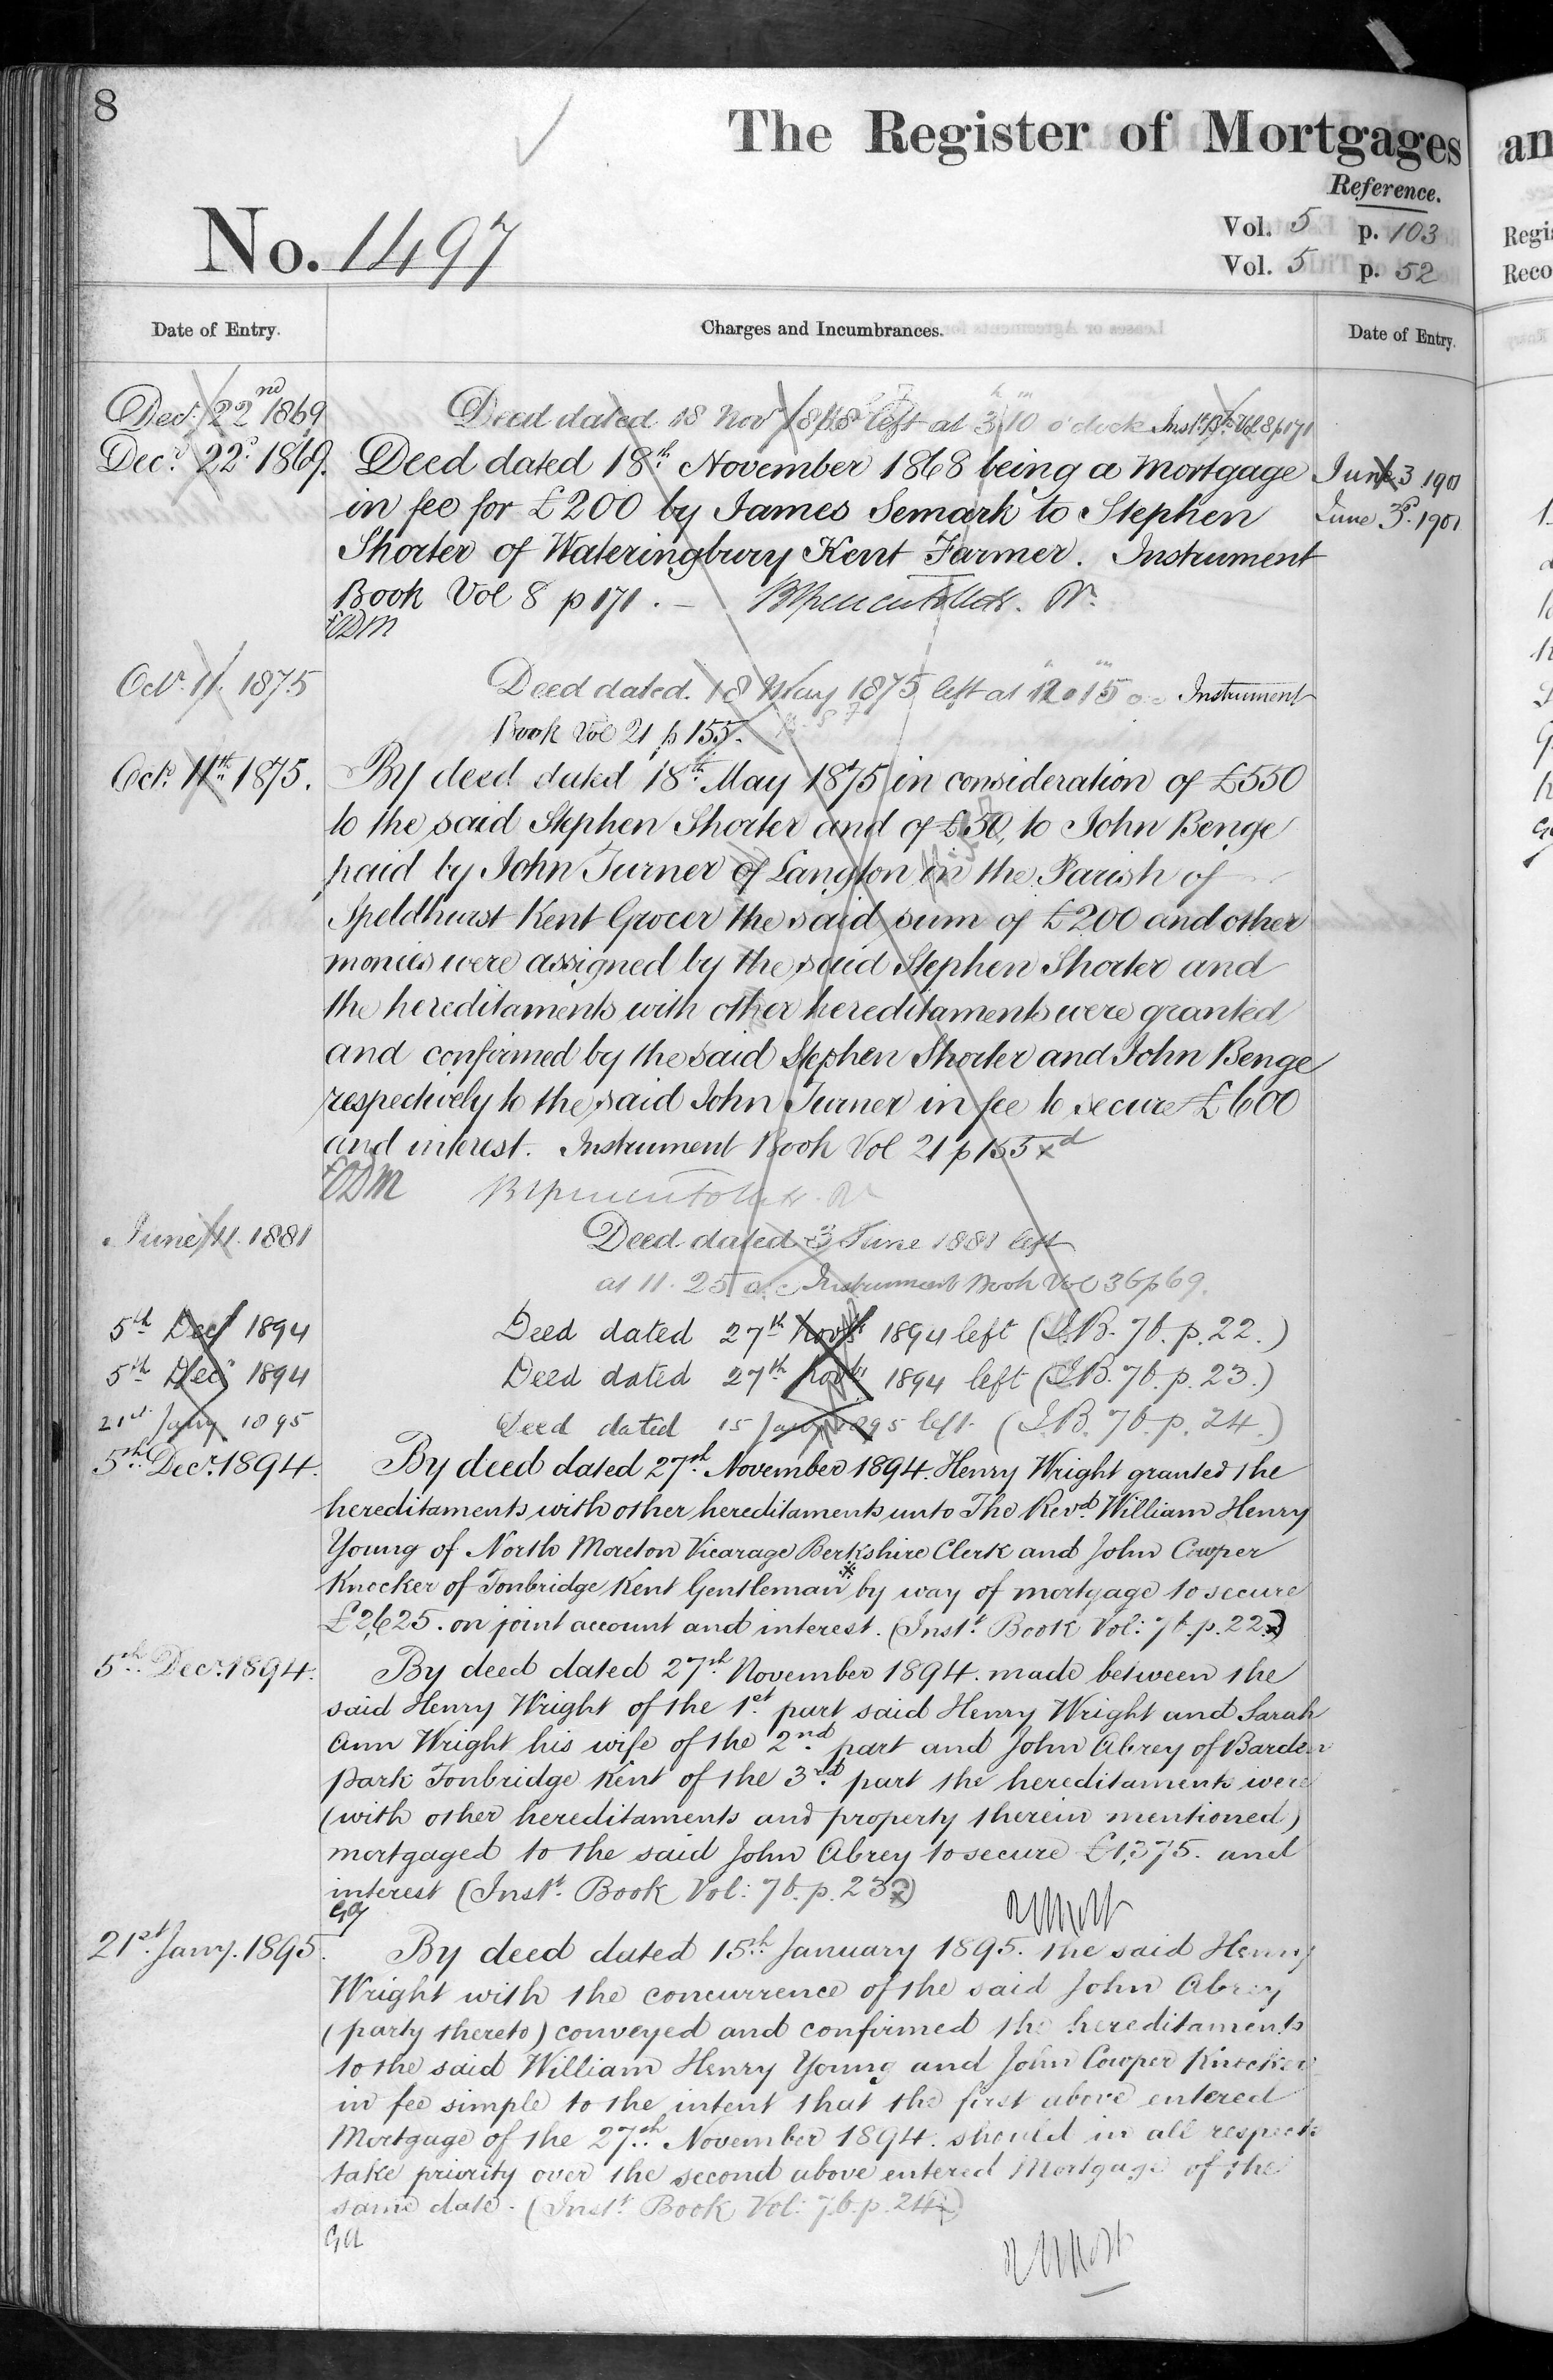 8
The Register of Mortgages
an
Reference.
No. 1497
Vol. 5 p. 103
Vol. 5 p. 52
Regi
Reco
Date of Entry.
Charges and Incumbrances.
Date of Entry.
Decr. 22nd 1869
Deed dated 18 Novr 1868 left at 3h 10m o'clock Inst. Bk Vol 8 p 171
Decr. 22d 1869. Deed dated 18th November 1868 being a Mortgage June 3 1901
in fee for £200 by James Semark to Stephen June 3d. 1901
Shorter of Wateringbury Kent Farmer. Instrument
Book Vol 8 p 171. —
Oct. 11. 1875
Deed dated 18 May 1875 left at 12h 15m o.c Instrument
Book Vol 21 p 155.
Octr. 11th 1875. By deed dated 18th May 1875 in consideration of £550
to the said Stephen Shorter and of £50, to John Benge
paid by John Turner of Langton in the Parish of
Speldhurst Kent Grocer the said sum of £200 and other
monies were assigned by the said Stephen Shorter and
the hereditaments with other hereditaments were granted
and confirmed by the said Stephen Shorter and John Benge
respectively to the said John Turner in fee to secure £600
and interest. Instrument Book Vol 21 p 155 xd
June 11. 1881
Deed dated 3 June 1881 left
at 11.25 o.c Instrument Book Vol 36 p 69.
5th Decr 1894 Deed dated 27th Novr 1894 left (I.B. 76. p. 22.)
5th Decr 1894 Deed dated 27th Novbr 1894 left (I.B. 76. p. 23.)
21st Jany 1895 Deed dated 15 Jany 1895 left (I.B. 76. p. 24.)
5th Decr. 1894. By deed dated 27th November 1894. Henry Wright granted the
hereditaments with other hereditaments unto The Revd. William Henry
Young of North Moreton Vicarage Berkshire Clerk and John Cowper
Knocker of Tonbridge Kent Gentleman * by way of mortgage to secure
£2,625. on joint account and interest. (Instt. Book Vol: 76. p. 22.x)
5th Decr. 1894. By deed dated 27th November 1894. made between the
said Henry Wright of the 1st part said Henry Wright and Sarah
Ann Wright his wife of the 2nd part and John Abrey of Barden
Park Tonbridge Kent of the 3rd part the hereditaments were
(with other hereditaments and property therein mentioned)
mortgaged to the said John Abrey to secure £1,375. and
interest (Instt. Book Vol: 76. p. 23x)
21st Jany. 1895. By deed dated 15th January 1895. the said Henry
Wright with the concurrence of the said John Abrey
(party thereto) conveyed and confirmed the hereditaments
to the said William Henry Young and John Cowper Knocker
in fee simple to the intent that the first above entered
Mortgage of the 27th November 1894. should in all respects
take priority over the second above entered Mortgage of the
same date. (Instt. Book Vol: 76. p. 24x)